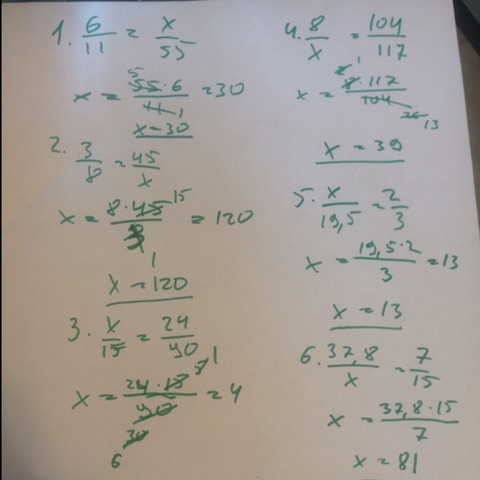 1. 6/11 = x/55
x = 55·6/11 = 30
5 1
x = 30
2. 3/8 = 45/x
x = 8·45/3 = 120
15 1
x = 120
3. x/15 = 24/90
x = 24·15/90 = 4
1
30
6
4. 8/x = 104/117
x = 8·117/104
1
26 13
x = 39
5. x/19,5 = 2/3
x = 19,5·2/3 = 13
x = 13
6. 37,8/x = 7/15
x = 37,8·15/7
x = 81